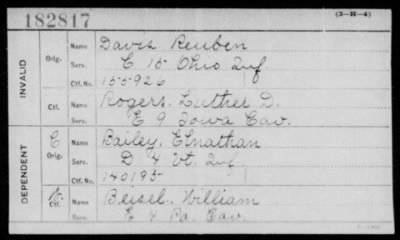 182817
(3-H-4)
INVALID
Orig.
Name
Davis Reuben
Serv.
E 15 Ohio Inf.
Ctf. No.
155926
Ctf.
Name
Rogers, Luther D.
Serv.
E 9 Iowa Cav.
DEPENDENT
C
Orig.
Name
Bailey, Elnathan
Serv.
D 4 Vt. Inf.
Ctf. No.
140195
Ctf.
Name
Beisel, William
Serv.
E 4 Pa. Cav.